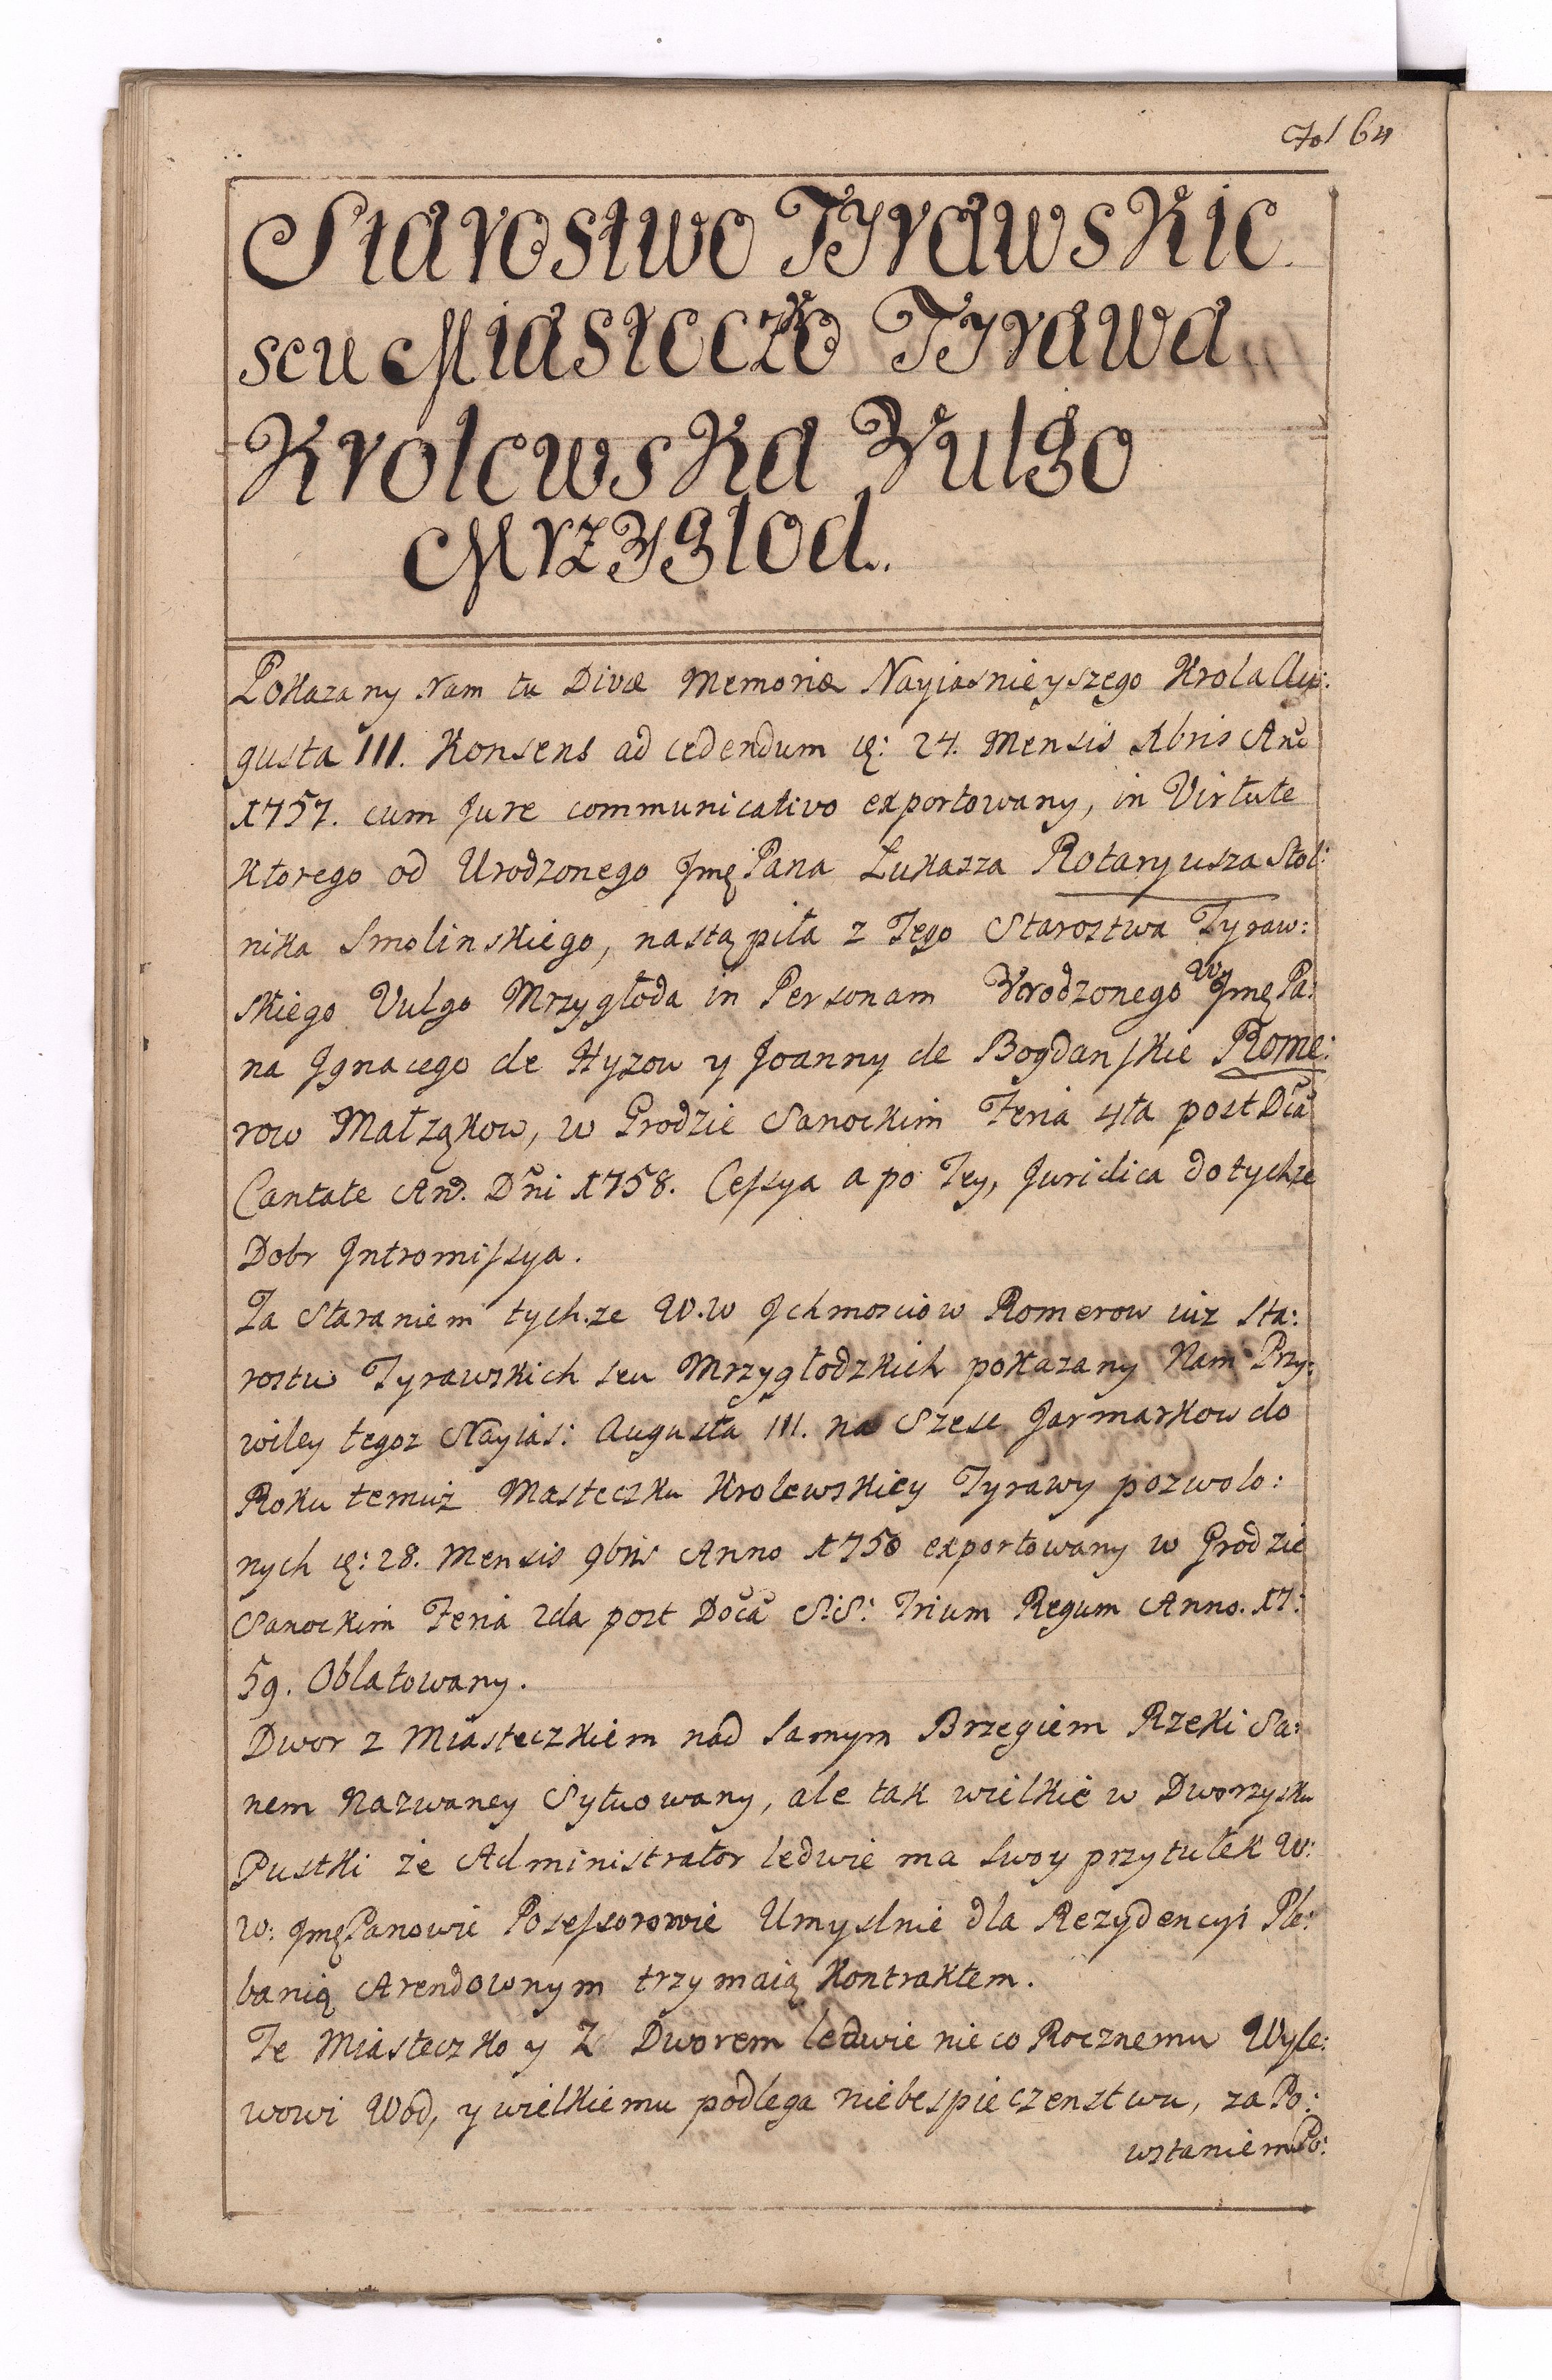 Fol 64
Starostwo Tyrawskie
seu Miasteczko Tyrawa
Krolewska Vulgo
Mrzyglod.
Pokazany Nam tu Divæ Memoriæ Nayiasnieyszego Krola Au:
gusta III. Konsens ad cedendum ię: 24. Mensis Xbris Ano
1757. cum Jure communicativo exportowany, in Virtute
Ktorego od Urodzonego Jmę Pana Łukasza Rotaryusza Stol:
nika Smolinskiego, nastąpiła z Tego Starostwa Tyraw:
skiego Vulgo Mrzygłoda in Personam Urodzonego W Jmę Pa:
na Jgnacego de Hyzow y Joanny de Bogdanskie Rome:
row Małząkow, w Grodzie Sanockim Feria 4ta post Dca
Cantate Ano. Dni 1758. Cessya a po Tey, Juridica do tychże
Dobr Jntromissya.
Za Staraniem tych.ze W.W Jchmosciow Romerow iuz Sta:
rostw Tyrawskich seu Mrzygłodzkich pokazany Nam Przy:
wiley tegoz Nayias: Augusta III. na Szesc Jarmarkow do
Roku temuż Masteczku Krolewskiey Tyrawy pozwolo:
nych ię: 28. Mensis 9bris Anno 1750 exportowany w Grodzie
Sanockim Feria 2da post Doca S:S: Trium Regum Anno. 17:
59. Oblatowany.
Dwor z Miasteczkiem nad samym Brzegiem Rzeki Sa:
nem Nazwaney Sytuowany, ale tak wielkie w Dworzysku
Pustki że Administrator ledwie ma swoy przytułek W:
W: Jmę Panowie Possessorowie Umyslnie dla Rezydencyi Ple:
banią Arendownym trzymaią Kontraktem.
Te Miasteczko y Z Dworem ledwie nie co Rocznemu Wyle:
wowi Wód, y wielkiemu podlega niebespieczenstwu, za Po:
wstaniem Po: